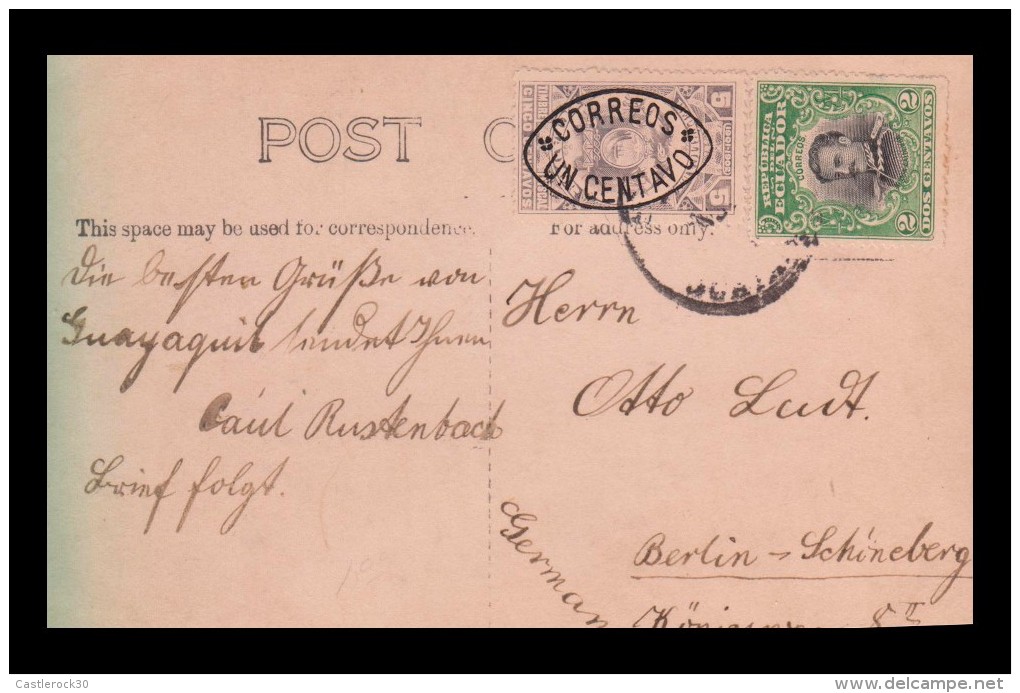 POST
CORREOS
UN CENTAVO
5
5
TIMBRE
CINCO
REPUBLICA
ECUADOR
CORREOS
2
2
DOS CENTAVOS
This space may be used for correspondence.
For address only.
Die besten Grüße von
Guayaquil sendet Ihnen
Paul Rustenbach
Brief folgt.
Herrn
Otto Ludt.
Berlin-Schöneberg
German
8 II
Castlerock30
© delcampe.net